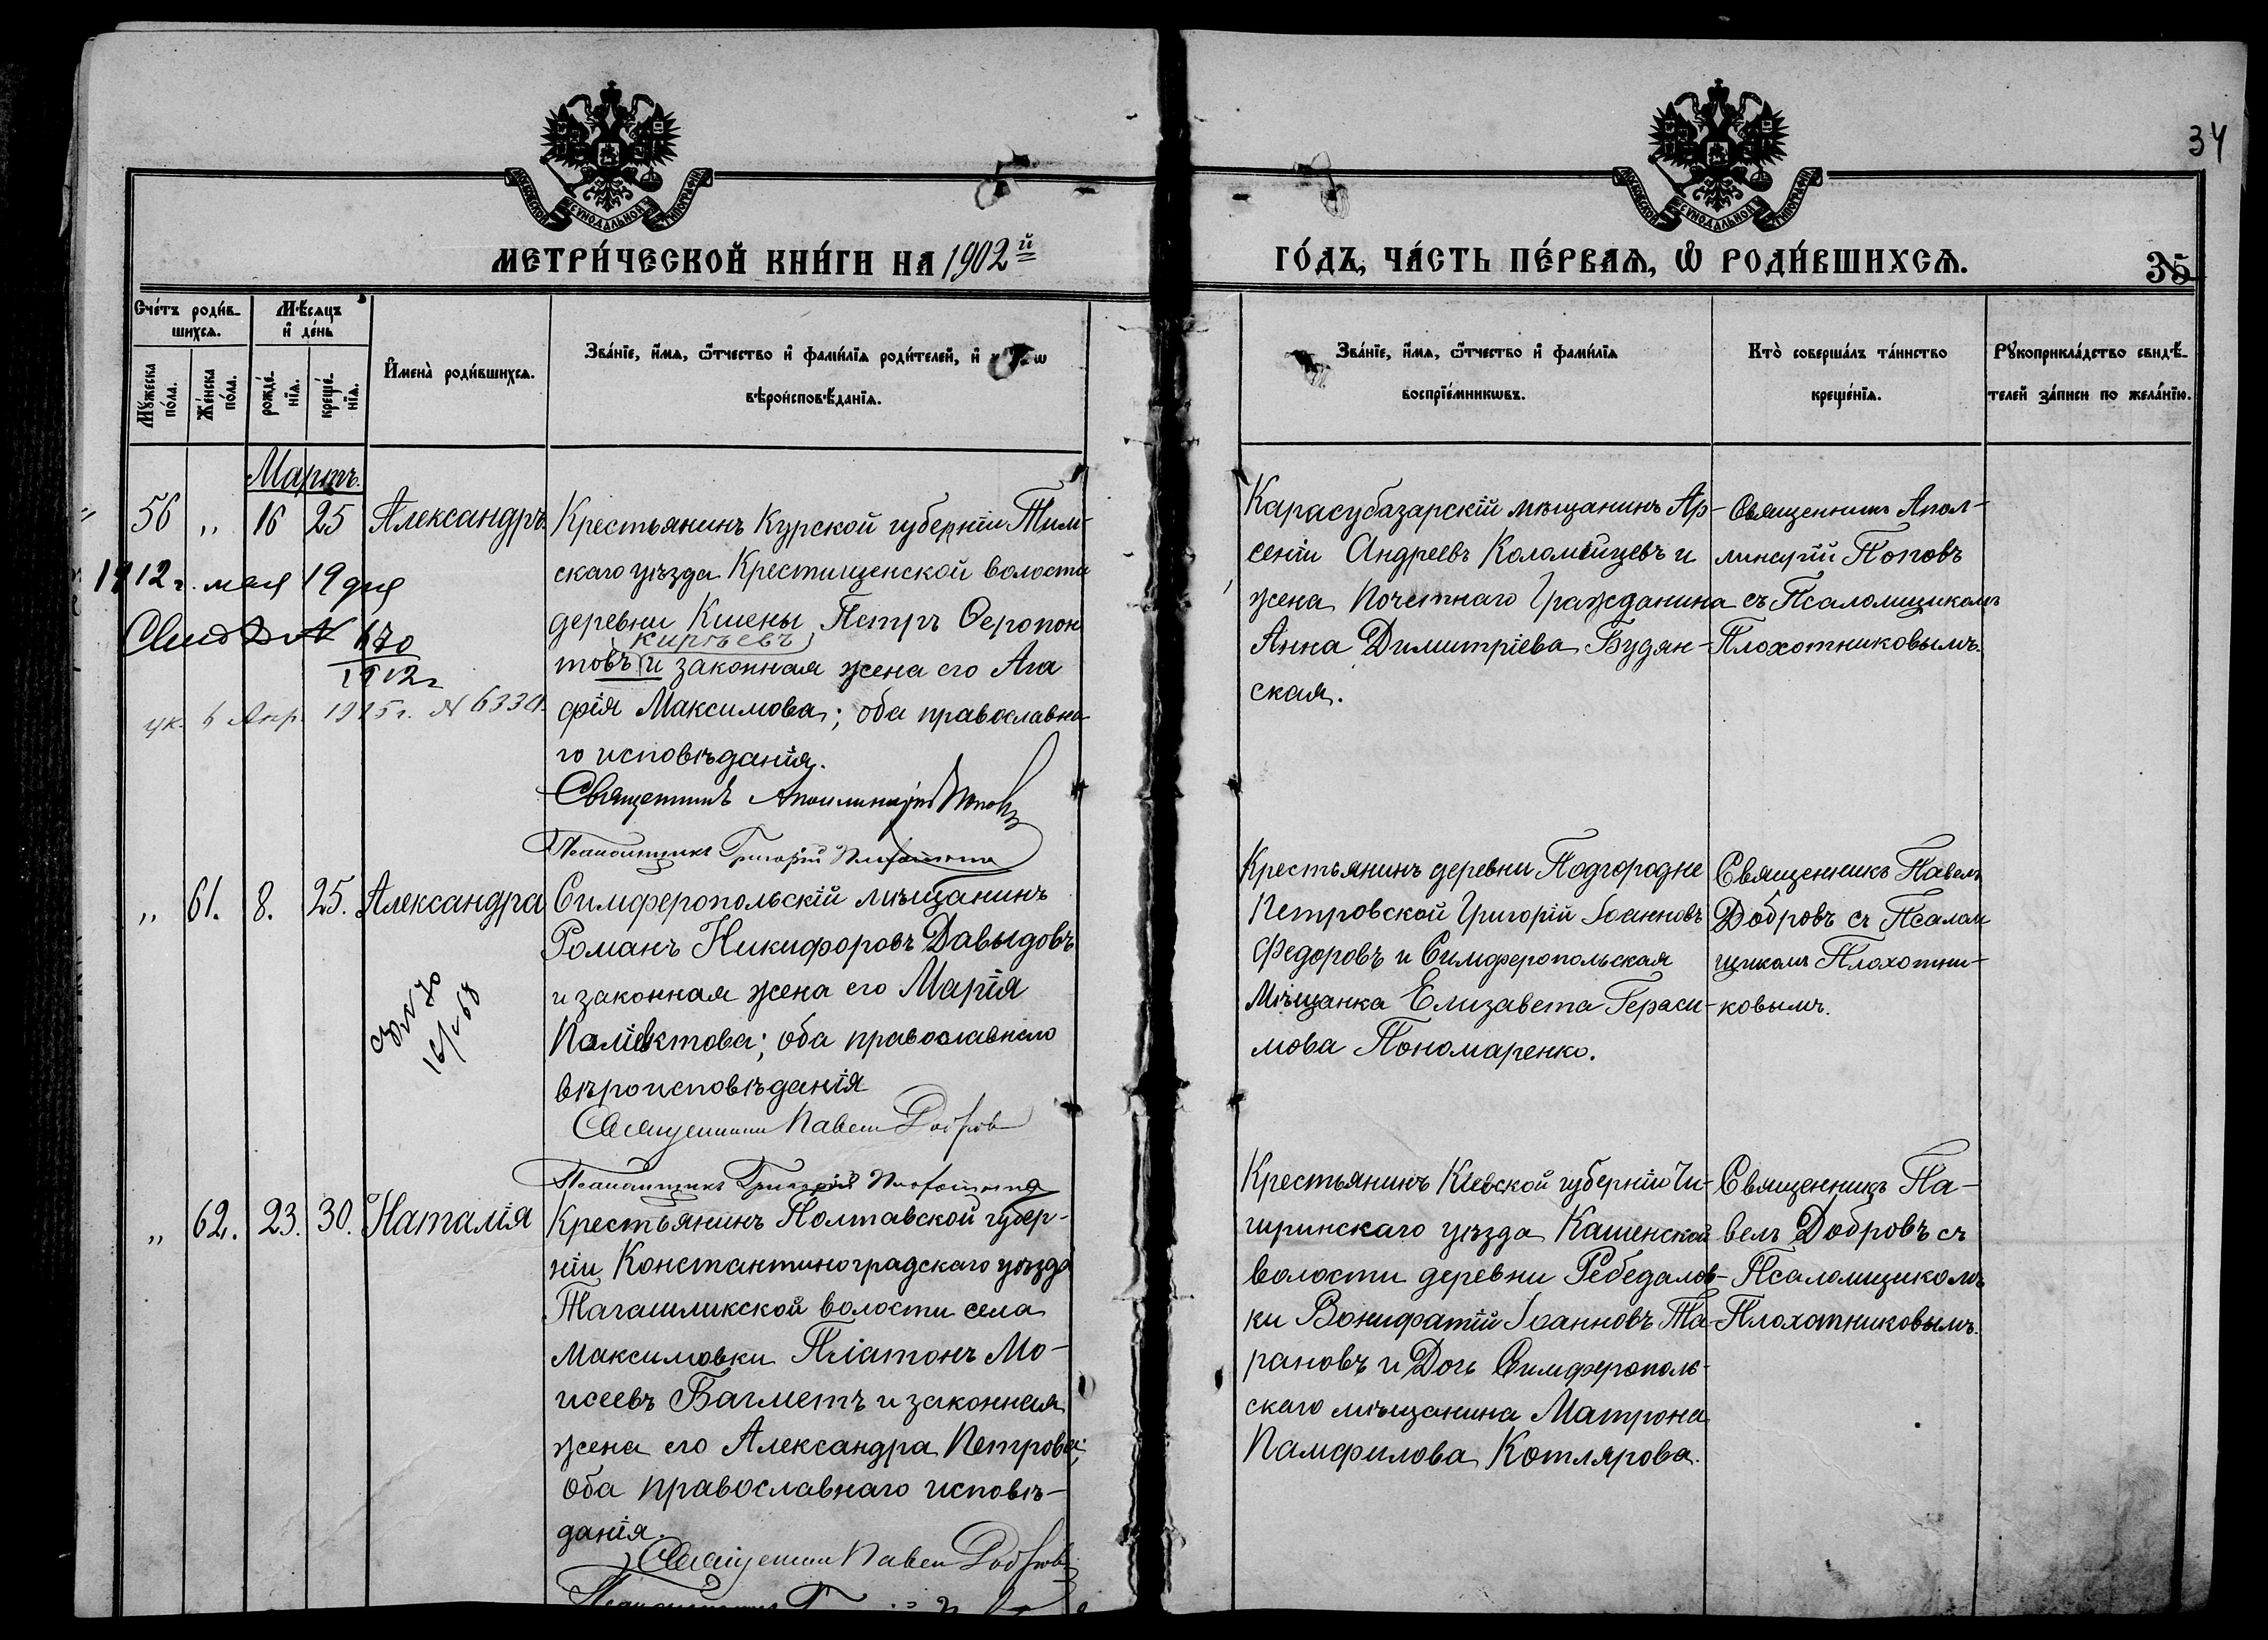 34
МОСКОВСКОЙ СѴНОДАЛЬНОЙ ТИПОГРАФІИ
МОСКОВСКОЙ СѴНОДАЛЬНОЙ ТИПОГРАФІИ
МЕТРИ́ЧЕСКОЙ КНИ́ГИ НА 1902й
ГО́ДЪ, ЧА́СТЬ ПЕ́РВАЯ, Ѽ РОДИ́ВШИХСЯ.
35
Сче́тъ роди́в-
шихся.
Мѣ́сяцъ
и де́нь
Му́жеска
по́ла.
Же́нска
по́ла.
рожде́-
нїя.
креще́-
нїя.
Имена̀ роди́вшихся.
Зва́нїе, и́мя, ѻ́тчество и фами́лїя роди́телей, и
вѣроисповѣ́данїя.
Зва́нїе, и́мя, ѻ́тчество и фами́лїя
воспрїе́мниковъ.
Кто̀ соверша́лъ та́инство
креще́нїя.
Рукоприкла́дство свидѣ́-
телей за́писи по жела́нїю.
Мартъ.
56 " 16 25 Александръ
Крестьянинъ Курской губерніи Тим-
скаго уѣзда Крестищенской волости
деревни Кшены Петръ Ѳеропон
Кирѣевъ
товъ и законная жена его Ага
фія Максимова; оба православна-
го исповѣданія.
Священникъ Апполинарій Поповъ
Псаломщикъ Григорій
1912 г. мая 19 дня
670
1912 г
ук. 6 Апр. 1915 г. № 6334.
Карасубазарскій мѣщанинъ Ар-
сеній Андреевъ Коломійцевъ и
жена Почетнаго Гражданина
Анна Димитріева Будян-
ская.
Священникъ Апол-
линарій Поповъ
съ Псаломщикомъ
Плохотниковымъ.
" 61. 8. 25. Александра
Симферопольскій мѣщанинъ
Романъ Никифоровъ Давыдовъ
и законная жена его Марія
Поліектова; оба православнаго
вѣроисповѣданія
Священникъ Павелъ Добровъ
Псаломщикъ Григорій
Крестьянинъ деревни Подгородне
Петровской Григорій Іоанновъ
Федоровъ и Симферопольская
Мѣщанка Елизавета Гераси-
мова Пономаренко.
Священникъ Павелъ
Добровъ съ Псалом
щикомъ Плохотни-
ковымъ.
" 62. 23. 30. Наталія
Крестьянинъ Полтавской губер-
ніи Константиноградскаго уѣзда
Тагамликской волости села
Максимовки Платонъ Мо-
исеевъ Багметъ и законная
жена его Александра Петрова;
оба православнаго исповѣ-
данія.
Священник Павел Добровъ
Крестьянинъ Кіевской губерніи Чи-
гиринскаго уѣзда Каменской
волости деревни Ребедалов-
ки Вонифатій Іоанновъ Та-
рановъ и Дочь Симферополь-
скаго мѣщанина Матрона
Памфилова Котлярова.
Священникъ Па-
велъ Добровъ съ
Псаломщикомъ
Плохотниковымъ.